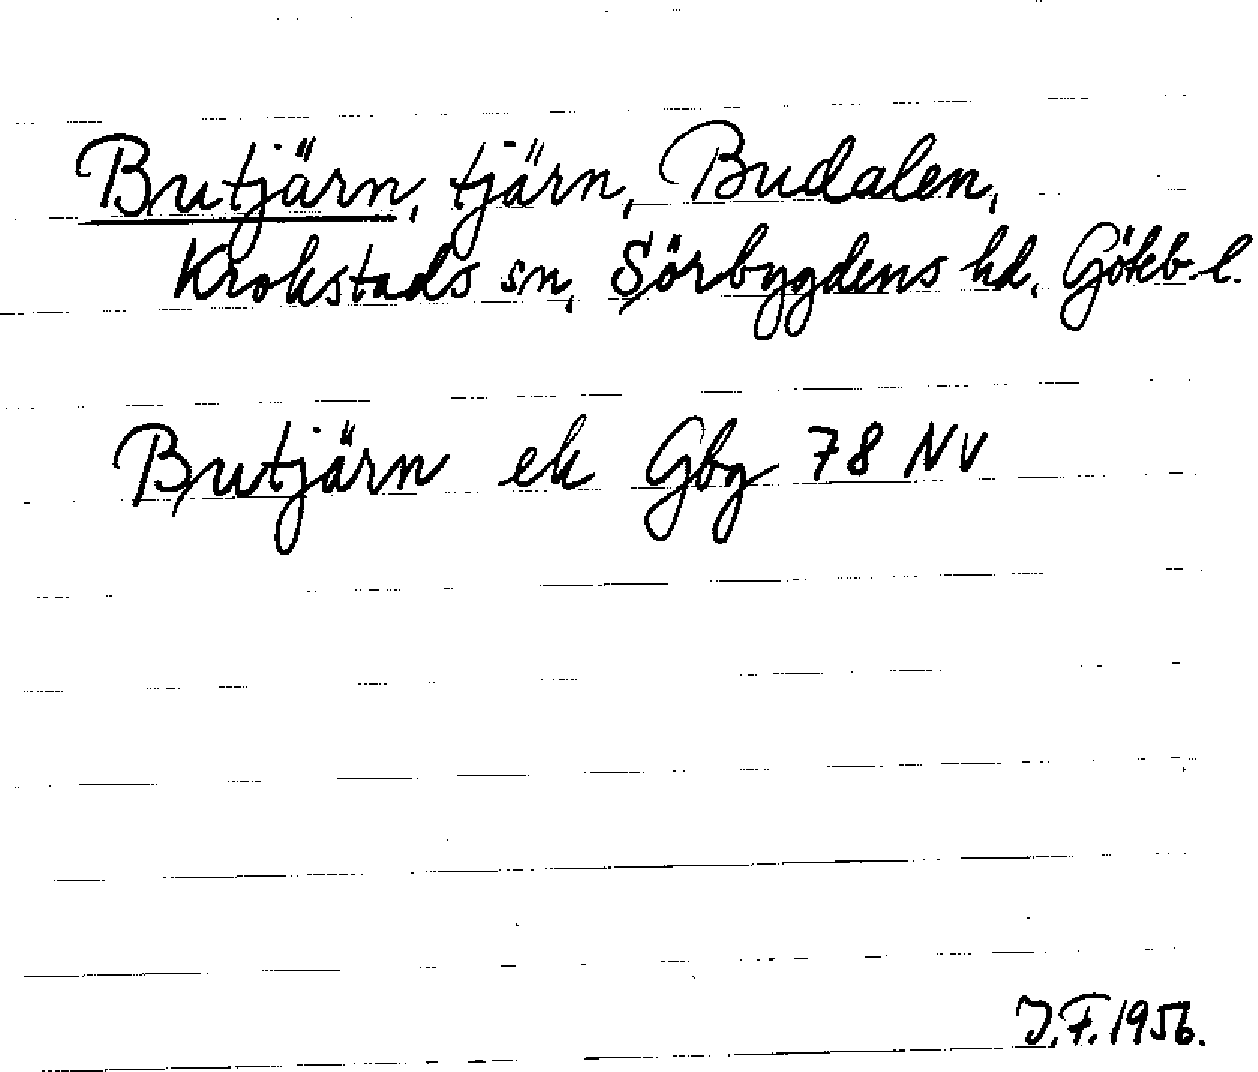 Butjärn, tjärn, Budalen,
Krokstads sn, Sörbygdens hd, Göteb. l.
Butjärn ek Gbg 78 NV
J.F. 1956.